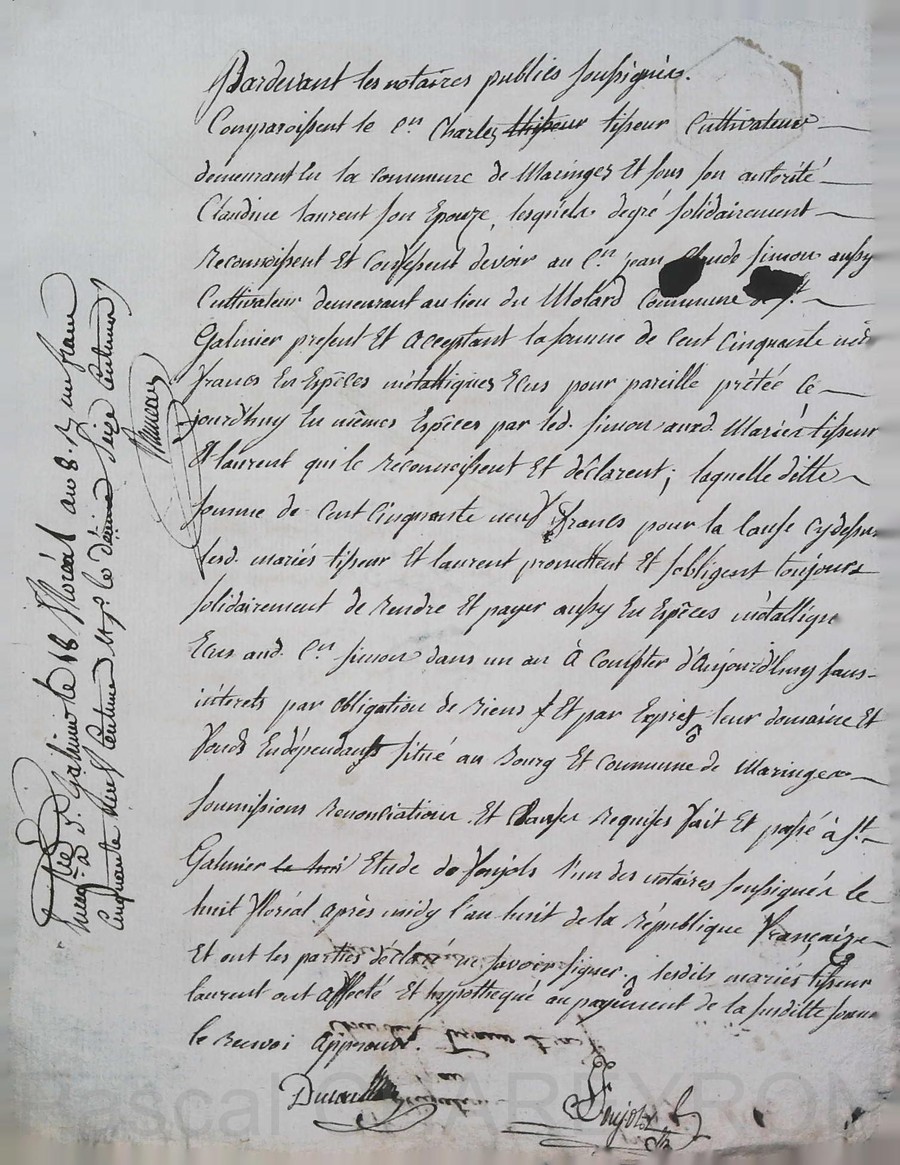 Pardevant les notaires publics soussignés.
Comparoissent le c.en Charles tisseur Cultivateur
demeurant en la commune de Maringes Et sous son autorité
Claudine laurent son Epouze, lesquels degré solidairement
reconnoissent Et Confessent devoir au C.en jean Claude simon aussy
Cultivateur demeurant au lieu du Motard Commune de S.t
Galmier present Et acceptant la somme de Cent Cinquante neuf
francs En Espêces métalliques Ecus pour pareille prétée Ce
jourdhuy En mêmes Espêces par led. simon auxd. Mariés tisseur
Et laurent qui le reconnoissent Et déclarent ; laquelle ditte
somme de Cent Cinquante neuf francs pour la Cause Cydessus
lesd. mariés tisseur Et laurent promettent Et sobligent toujours
solidairement de rendre Et payer aussy En Espêces métallique
Ecus aud. C.en simon dans un an À Compter d'Aujourdhuy sans
intérets par obligation de biens Et par Exprès leur domaine Et
fonds Endépendants situé au Bourg Et Commune de Maringes
soumissions renonciations Et Clauses requises fait Et passé à S.t
Galmier Etude de Ponjols l'un des notaires soussignés le
huit floréal après midy l'an huit de la république françaize
Et ont les parties déclaré ne savoir signer. lesdits mariés tisseur
laurent ont affecté Et hypothequé au payement de la susditte somme
le renvoi approuvé.
Ponjols
à S.t Galmier le 18 floréal an 8. un franc
Cinquante neuf Centimes Et p.r le décime seize Centimes